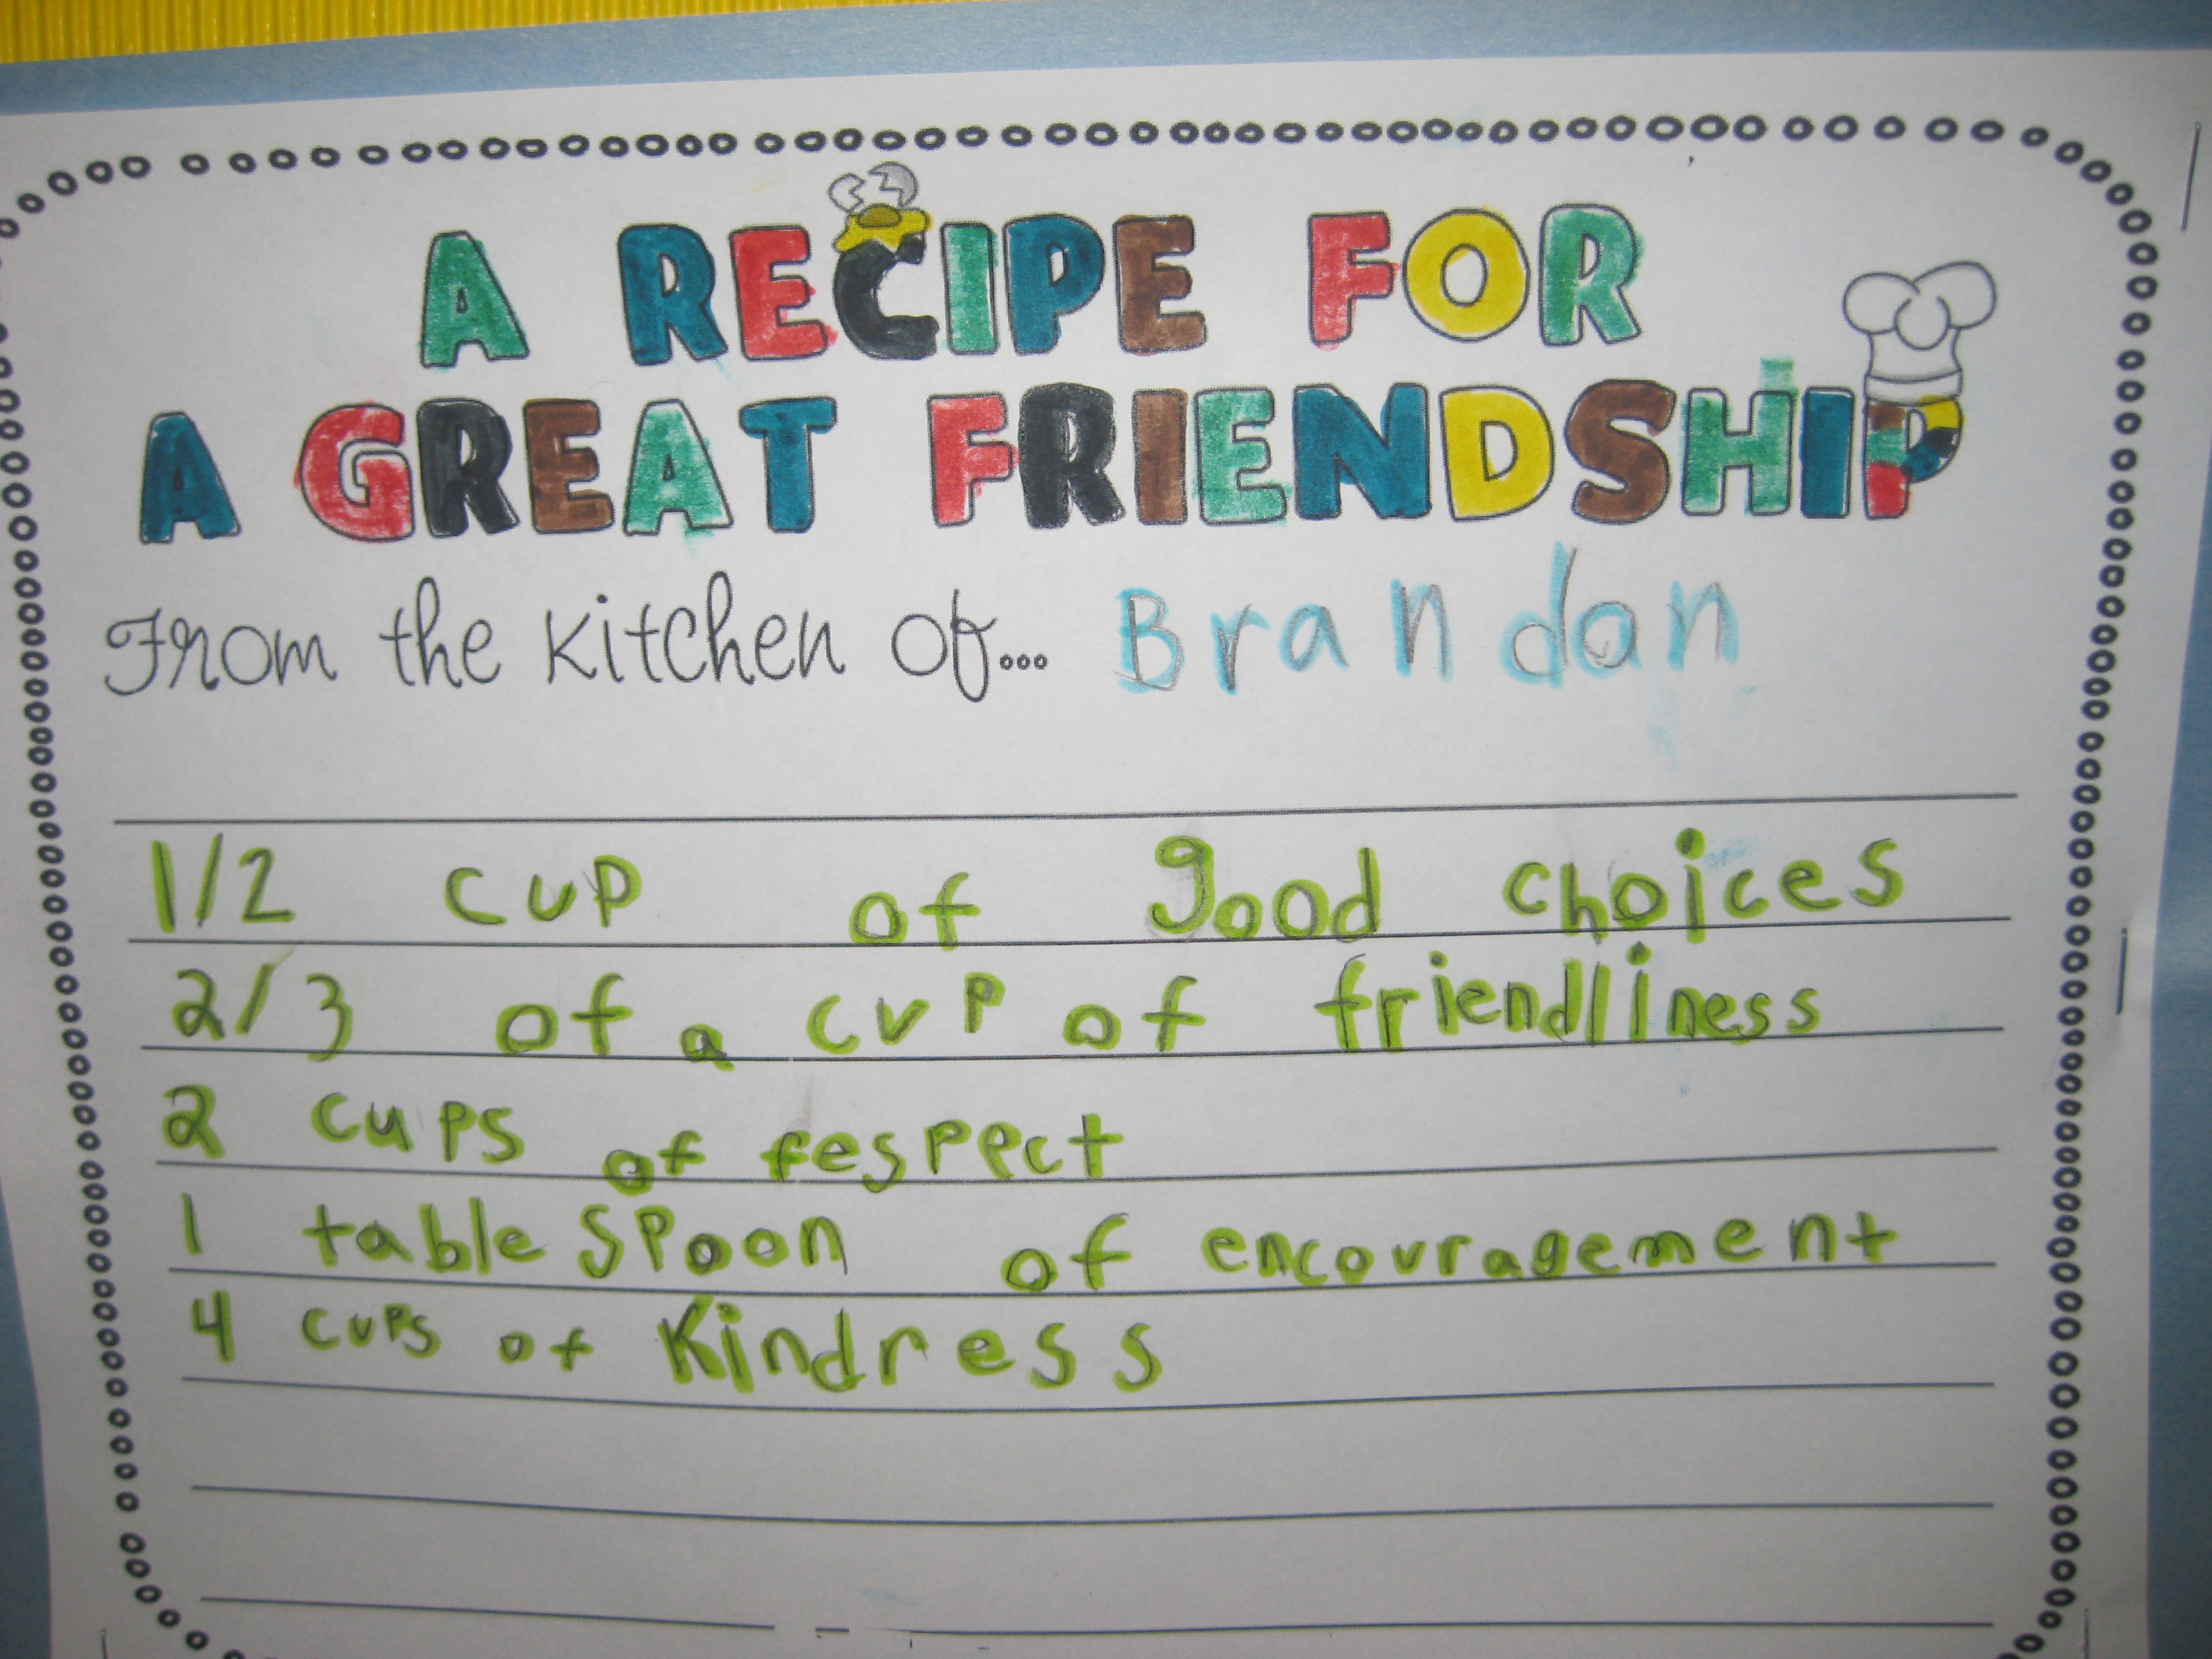 A RECIPE FOR
A GREAT FRIENDSHIP
From the kitchen of... Brandon
1/2 cup of good choices
2/3 of a cup of friendliness
2 cups of respect
1 table spoon of encouragement
4 cups of Kindress